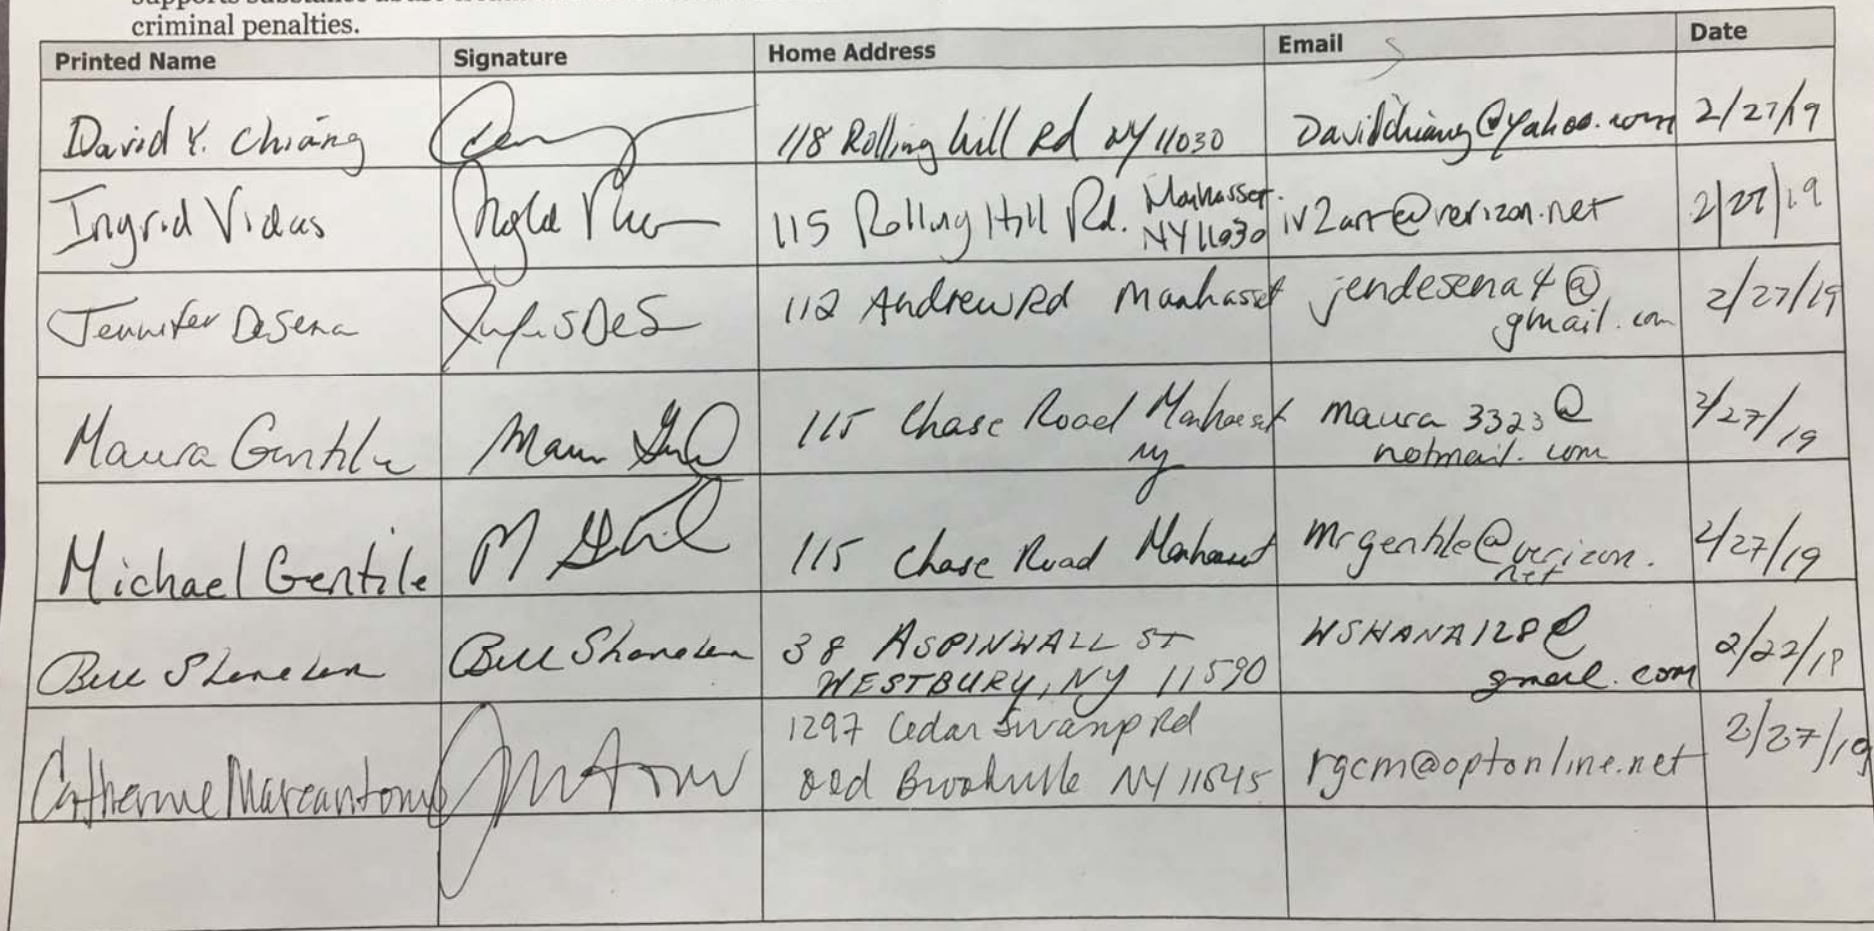 supports substance abuse
criminal penalties.
Printed Name Signature Home Address Email Date
David Y. Chiang 118 Rolling hill Rd NY 11030 Davidchiang@yahoo.com 2/27/19
Ingrid Vidas 115 Rolling Hill Rd. Manhasset. NY 11030 iv2art@verizon.net 2/27/19
Jennifer DeSena 112 Andrew Rd Manhasset jendesena4@
gmail.com 2/27/19
Maura Gentile Maura 115 Chase Road Manhasset
ny maura3323@
hotmail.com 2/27/19
Michael Gentile M 115 Chase Road Manhasset mrgentile@verizon.
net 2/27/19
Bill Shanahan Bill Shanahan 38 ASPINWALL ST
WESTBURY, NY 11590 WSHANA128@
gmail.com 2/22/19
Catherine Marcantonio 1297 Cedar Swamp Rd
Old Brookville NY 11545 rgcm@optonline.net 2/27/19